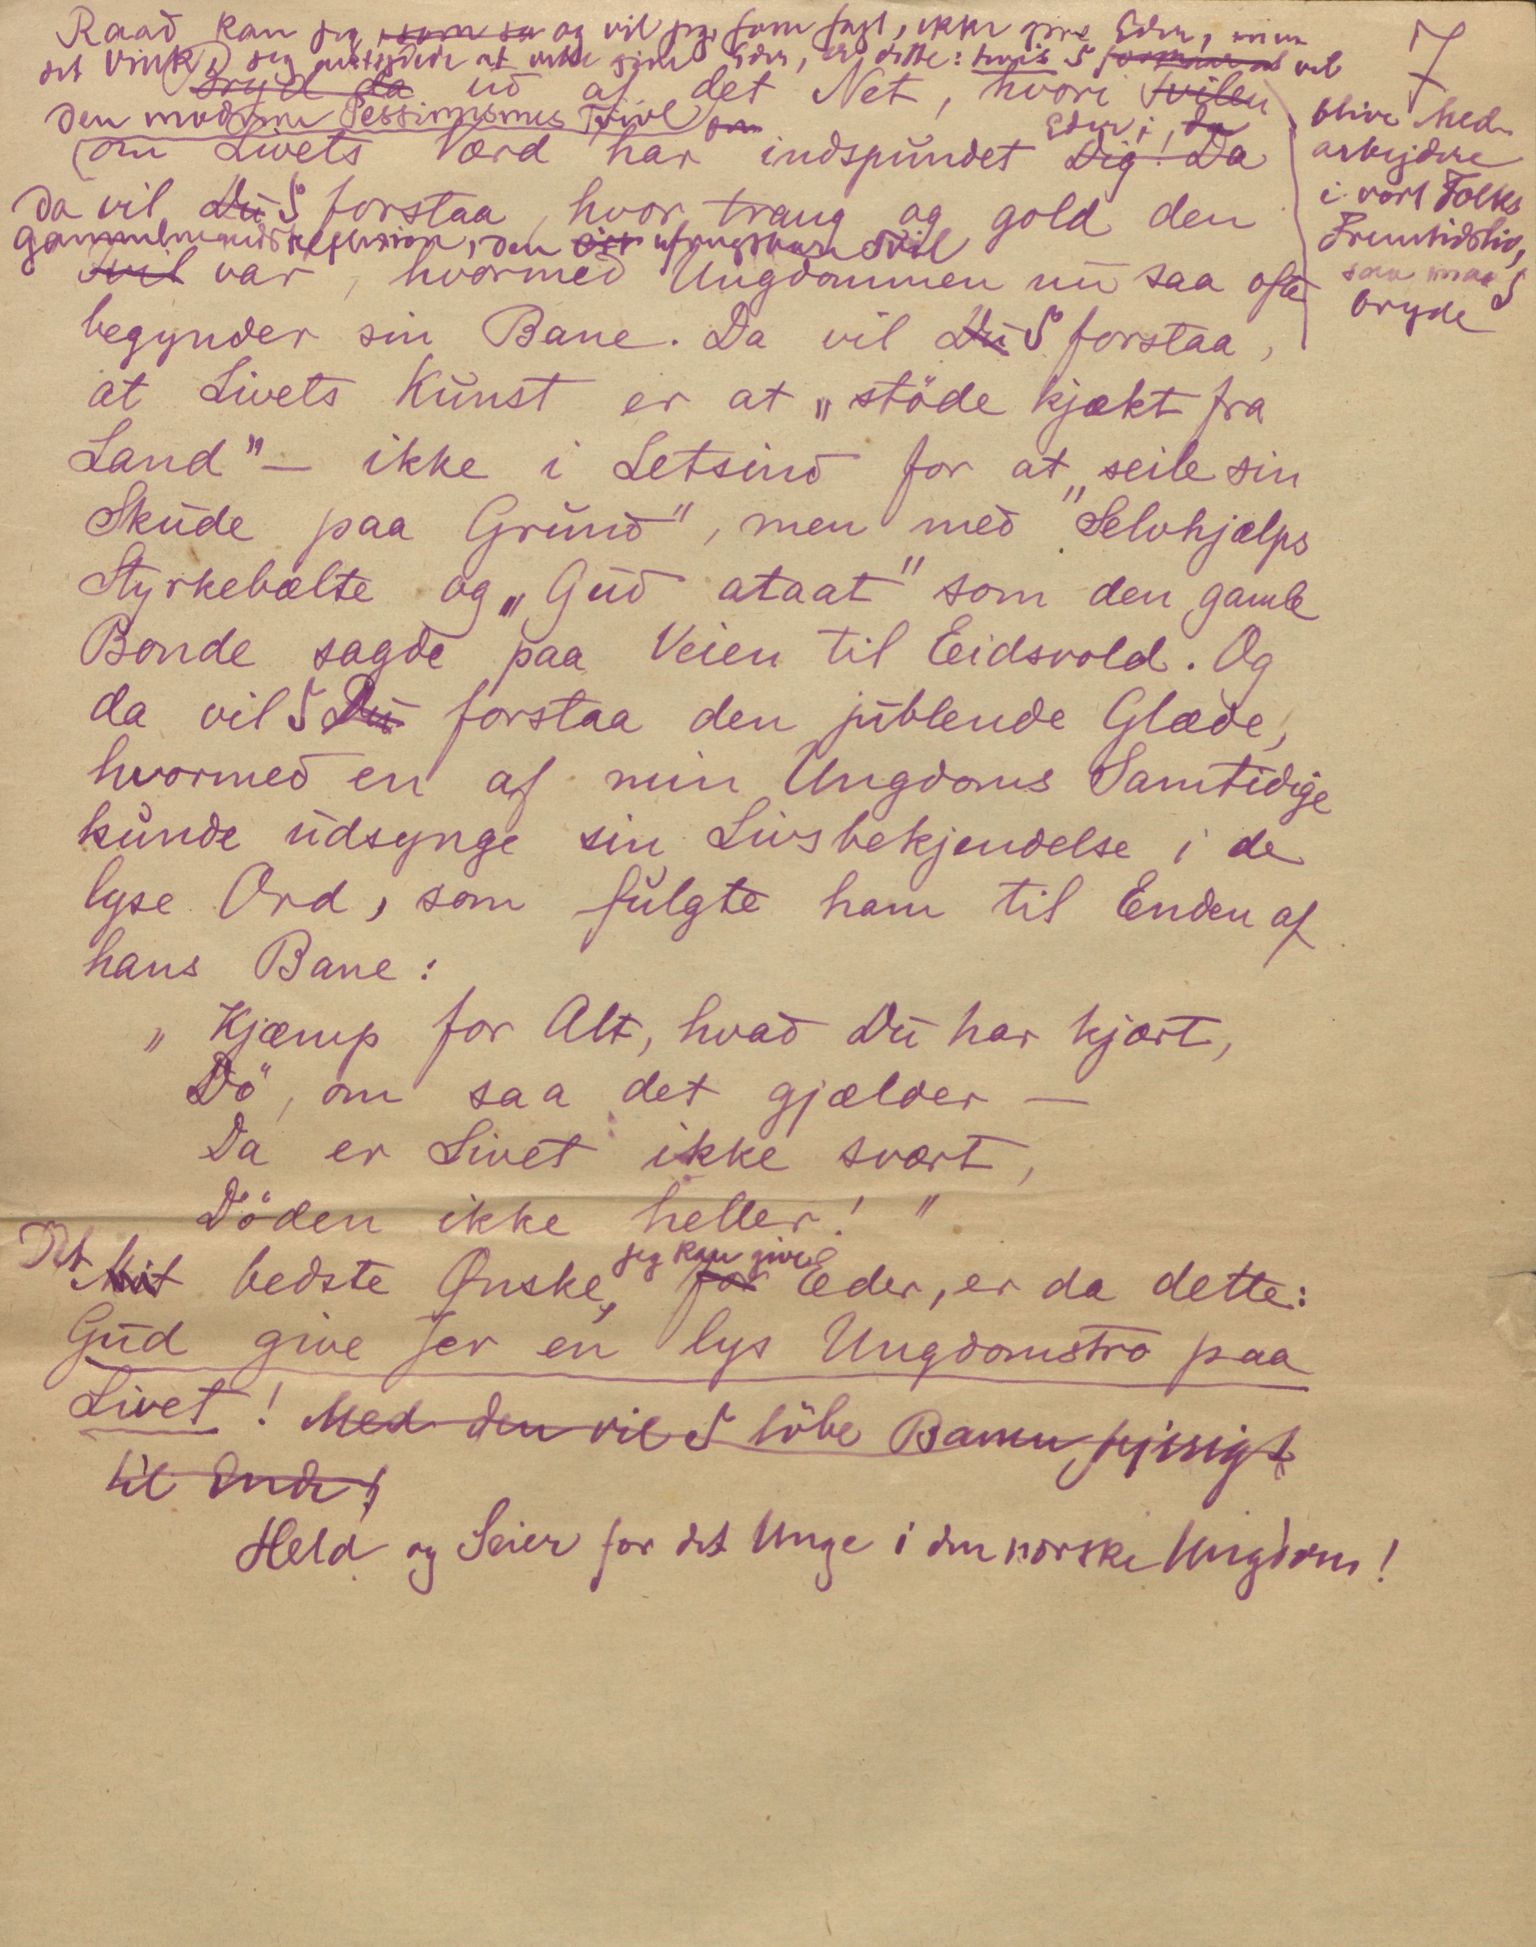 7
Raad kan jeg, som sa og vil jeg, som sagt, ikke give Eder, men
det Vink, jeg at give Eder, er dette: hvis I formaar at vil
blive Med-
arbeidere
i vort Folks
Fremtidsliv,
saa maa I
bryde
Bryd da ud af det Net, hvori Tvilen
den moderne Pessimismes Tvivl om
om Livets Værd har indspundet Dig! Da Eder i, da
Da vil Du I forstaa, hvor trang og gold den
Gammelmandsrefleksion, den ufrugtbare Tvil
Tvil var, hvormed Ungdommen nu saa ofte
begynder sin Bane. Da vil Du I forstaa,
at Livets Kunst er at „støde kjækt fra
Land" — ikke i Letsind for at „seile sin
Skude paa Grund", men med „Selvhjælps
Styrkebælte og „Gud ataat" som den gamle
Bonde sagde paa Veien til Eidsvold. Og
da vil I Du forstaa den jublende Glæde,
hvormed en af min Ungdoms Samtidige
kunde udsynge sin Livsbekjendelse i de
lyse Ord, som fulgte ham til Enden af
hans Bane:
„Kjæmp for Alt, hvad Du har kjært,
Dö, om saa det gjælder —
Da er Livet ikke svært,
Döden ikke heller!"
Det Mit bedste Ønske, jeg kan give for Eder, er da dette:
Gud give Jer en lys Ungdomstro paa
Livet! Med den vil I löbe Banen
til Ende!
Held og Seier for det Unge i den norske Ungdom!